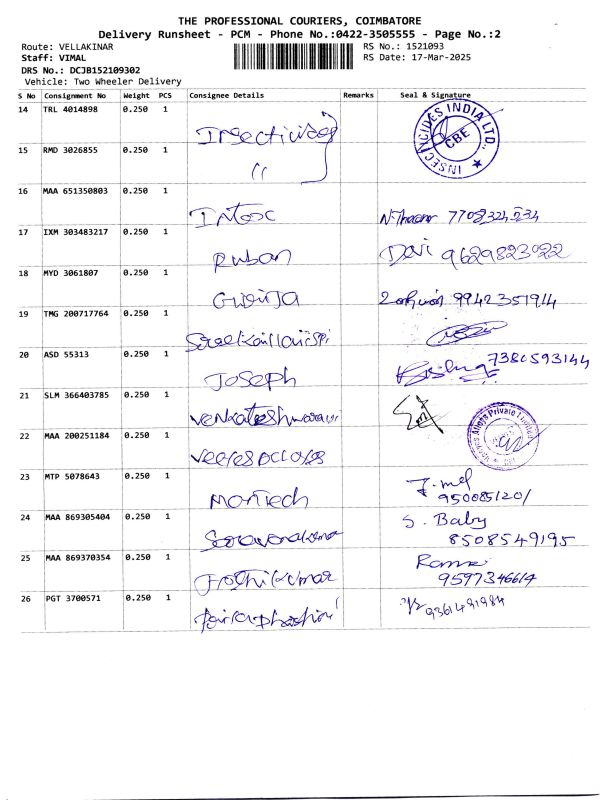 THE PROFESSIONAL COURIERS, COIMBATORE
Delivery Runsheet - PCM - Phone No.:0422-3505555 - Page No.:2
Route: VELLAKINAR
RS No.: 1521093
Staff: VIMAL
RS Date: 17-Mar-2025
DRS No.: DCJB152109302
Vehicle: Two Wheeler Delivery
S No Consignment No Weight PCS Consignee Details Remarks Seal & Signature
14 TRL 4014898 0.250 1 Insecticides INSECTICIDES INDIA LTD., CBE
15 RMD 3026855 0.250 1 "
16 MAA 651350803 0.250 1 7708324234
17 IXM 303483217 0.250 1 Ruban Devi 9629823022
18 MYD 3061807 0.250 1 Girija 9942351914
19 TMG 200717764 0.250 1
20 ASD 55313 0.250 1 JOSEPH 7380593144
21 SLM 366403785 0.250 1 Venkateshwara
22 MAA 200251184 0.250 1 Alloys Private Limited
23 MTP 5078643 0.250 1 MonTech 950085120/
24 MAA 869305404 0.250 1 S. Baby 8508549195
25 MAA 869370354 0.250 1 Jothikumar 9597346614
26 PGT 3700571 0.250 1 9361491984